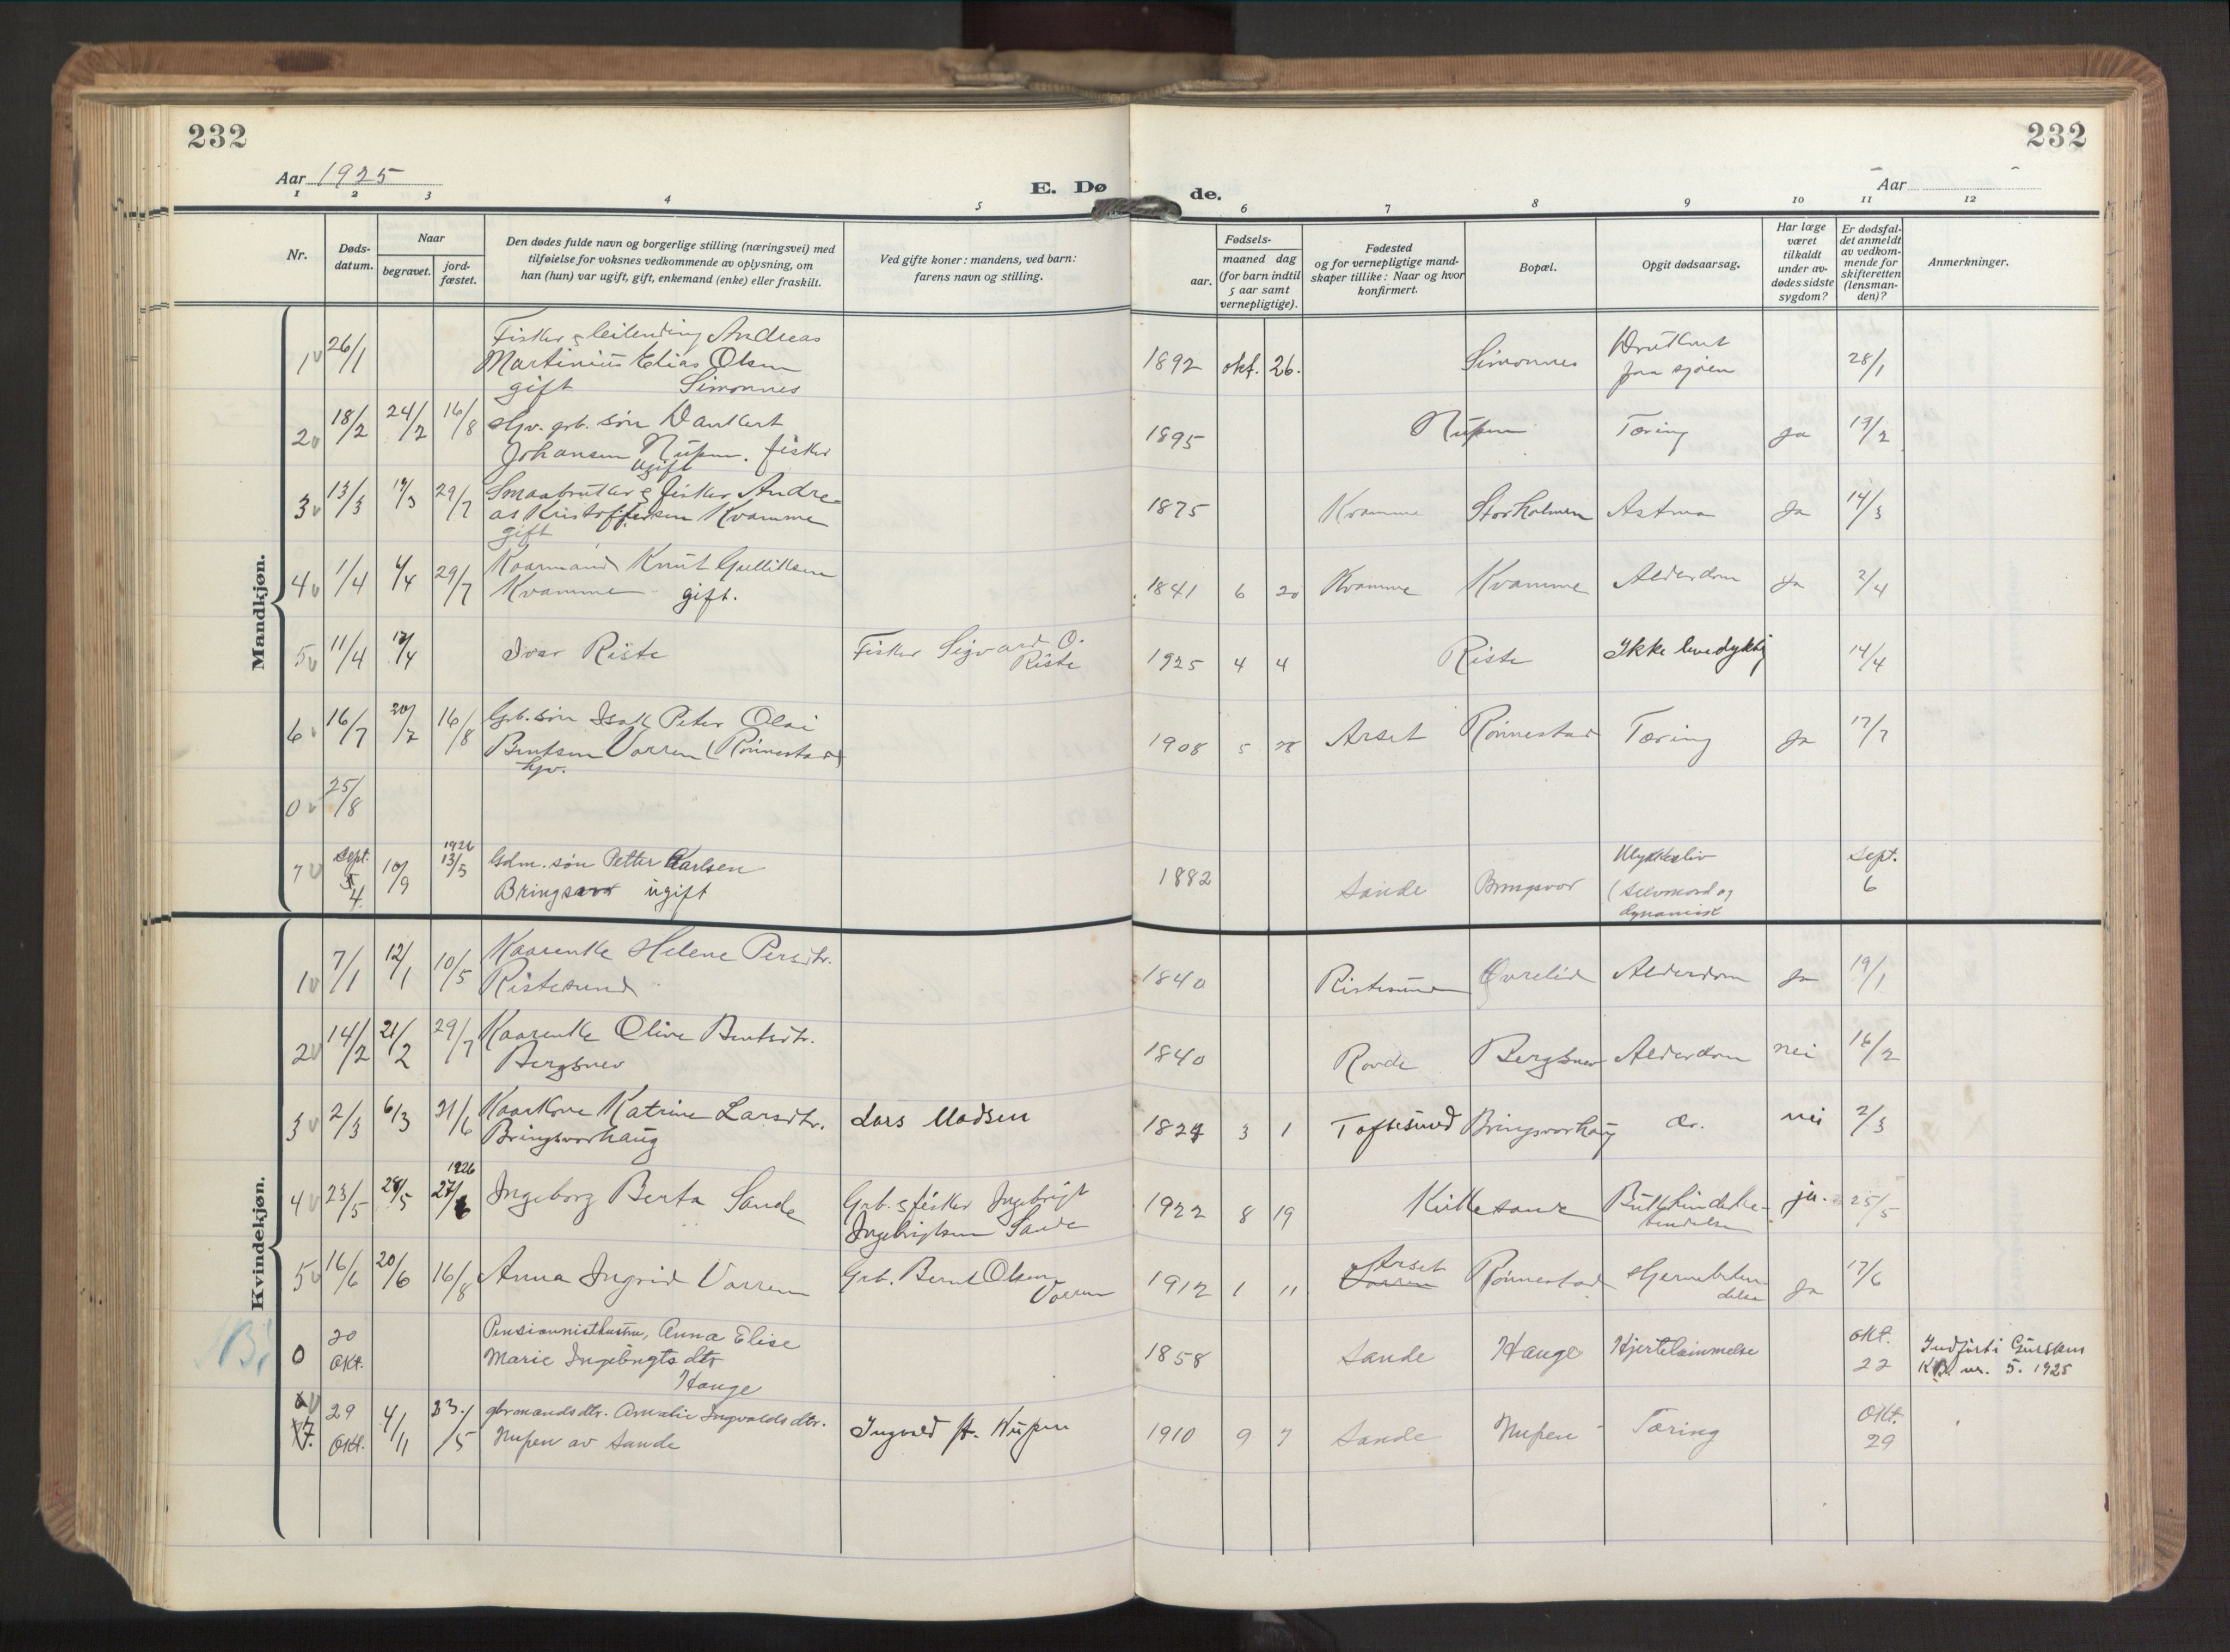 232
232
Aar 1925
E. Dø
de.
Aar
1 2 3 4 5 6 7 8 9 10 11 12
Nr.
Døds-
datum.
Naar
begravet.
jord-
fæstet.
Den dødes fulde navn og borgerlige stilling (næringsvei) med
tilføielse for voksnes vedkommende av oplysning, om
han (hun) var ugift, gift, enkemand (enke) eller fraskilt.
Ved gifte koner: mandens, ved barn:
farens navn og stilling.
Fødsels-
aar.
maaned dag
(for barn indtil
5 aar samt
vernepligtige).
Fødested
og for vernepligtige mand-
skaper tillike: Naar og hvor
konfirmert.
Bopæl.
Opgit dødsaarsag.
Har læge
været
tilkaldt
under av-
dødes sidste
sygdom?
Er dødsfal-
det anmeldt
av vedkom-
mende for
skifteretten
(lensman-
den)?
Anmerkninger.
Mandkjøn.
1 26/1 Fisker & leilending Andreas
Martinius Elias Olsen
gift Simonnes
1892 okt. 26. Simonnes Druknet
paa sjøen 28/1
2 18/2 24/2 16/8 Hjv. grb. søn Dankert
Johansen Nupen. fisker
ugift
1895 Nupen Tæring Ja 19/2
3 13/3 /3 29/7 Smaabruker & fisker Andre-
as Kristoffersen Kvamme
gift
1875 Kvamme Storholmen Astma Ja 14/3
4 1/4 /4 29/7 Kaarmand Knut Gulliksen
Kvamme gift.
1841 6 20 Kvamme Kvamme Alderdom Ja 2/4
5 11/4 /4 Ivar Riste
Fisker Sigvard O.
Riste
1925 4 4 Riste Ikke levedyktig 14/4
6 16/7 20/7 16/8 Grb. søn Isak Peter Olai
Berntsen Vorren (Rønnestad)
hjv.
1908 5 28 Arset Rønnestad Tæring Ja 17/7
0 25/8
7 Sept. 4 10/9 1926 13/5 Gdm. søn Petter Karlsen
Bringsvor ugift
1882 Sande Bringsvor Ulykkesliv
(selvmord og
dynamisk
Sept.
6
Kvindekjøn.
1 7/1 12/1 10/5 Kaarenke Helene Persdtr.
Ristesund
1840 Ristesund Øvrelid Alderdom Ja 19/1
2 14/2 21/2 29/7 Kaarenke Olive Berntsdtr.
Bergsnev
1840 Rovde Bergsnev Alderdom nei 16/2
3 2/3 6/3 21/6 Kaarkone Katrine Larsdtr.
Bringsvorhaug
Lars Madsen
1824 3 1 Toftesund Bringsvorhaug do. nei 2/3
4 23/5 28/5 1926 27/6 Ingeborg Berta Sande
Grb. & fisker Ingebrigt
Ingebrigtsen Sande
1922 8 19 Kirkesande Bukhindebe-
tendelse ja. 25/5
5 16/6 20/6 16/8 Anna Ingrid Vorren
Grb. Bernt Olsen
Vorren
1912 1 11 Arset
Vorren Rønnestad Hjernebeten-
delse Ja 17/6
0 20
Okt. Pensionnisthustru, Anna Elise
Marie Ingebrigtsdtr
Hauge
1858 Sande Hauge Hjertelammelse Okt.
22 Indført i Gursken
KB nr. 5. 1925
7. 29
Okt. 4/11 23/5 gbrmandsdtr. Amalie Ingvaldsdtr.
Nupen av Sande
Ingvald Nupen
1910 9 7 Sande Nupen Tæring Okt.
29